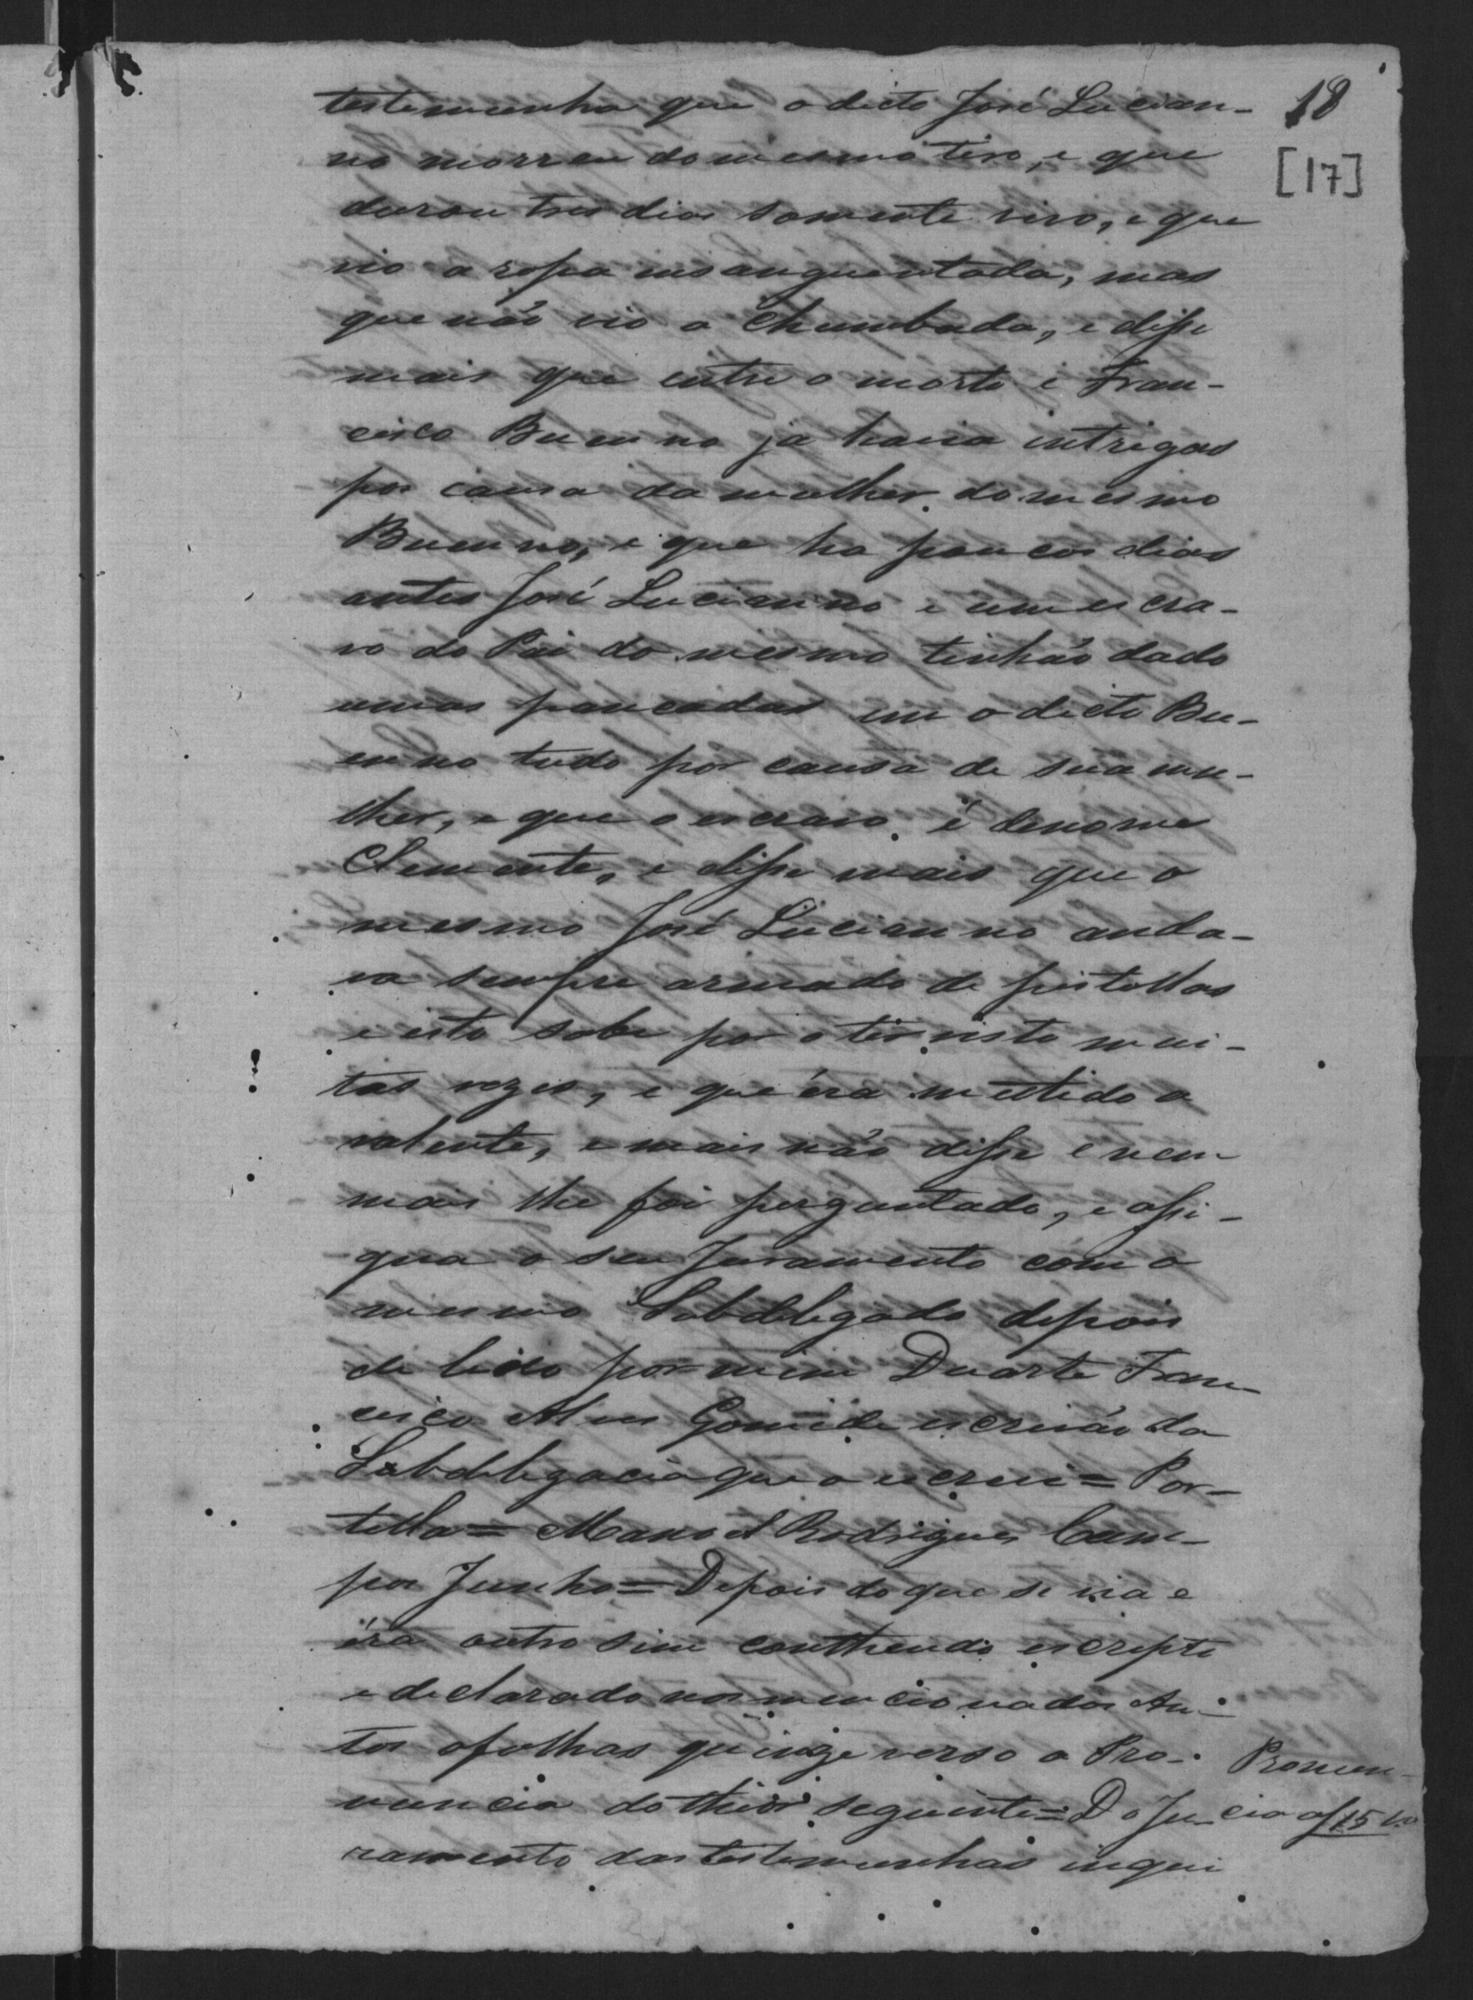 18
[17]
testemunha que o dicto José Lucian-
no morreu do mesmo tiro, e que
durou tres dias somente vivo, e que
vio a ropa insanguentada, mas
que não vio a chumbada, e disse
mais que entre o morto e Fran-
cisco Buenno ja havia intrigas
por causa da mulher do mesmo
Buenno, e que ha poucos dias
antes José Lucianno e um escra-
vo do Pai do mesmo tinhão dado
umas pancadas em o dicto Bu-
enno tudo por causa de sua mu-
lher, e que o escravo é de nome
Clemente, e disse mais que o
mesmo José Lucianno anda-
va sempre armado de pistollas
e isto sabe por o ter visto mui-
tas vezes, e que éra mettido a
valente, e mais não disse e nem
mais lhe foi perguntado, e assi-
gna o seu Juramento com o
mesmo Subdelegado depois
de lido por mim Duarte Fran-
cisco Alves Gomide escrivão da
Subdelegacia que o escrevi = Por-
tella = Manoel Rodrigues Cam-
pos Junho = Depois do que se via e
éra outro sim conthendo escripto
e declarado nos mencionados Au-
tos afolhas quinze verso a Pro-
nuncia do thiór seguinte = Do Ju-
ramento das testemunhas inqui
Pronun-
cia af 15 vo